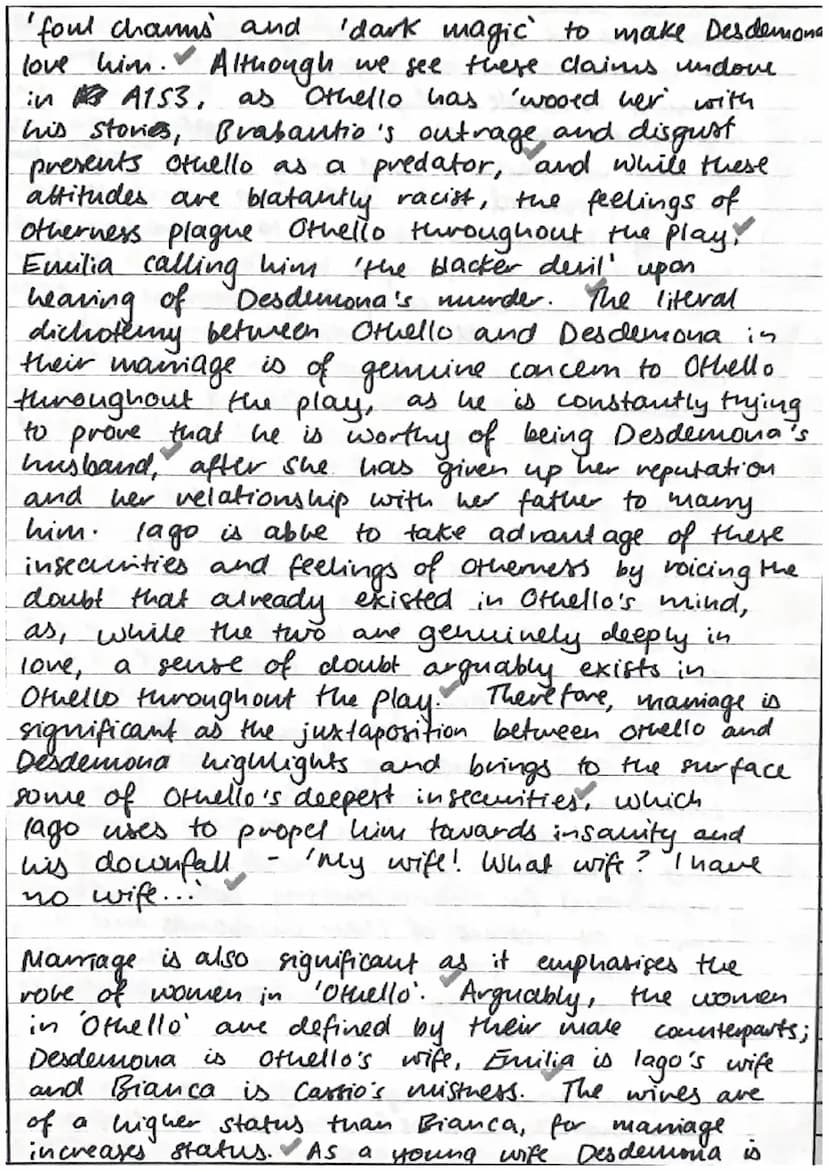 'foul charms' and 'dark magic' to make Desdemona
love him. Although we see these claims undone
in A1S3, as Othello has 'wooed her' with
his stories, Brabantio's outrage and disgust
presents Othello as a predator, and while these
attitudes are blatantly racist, the feelings of
otherness plague Othello throughout the play,
Emilia calling him 'the blacker devil' upon
hearing of Desdemona's murder. The literal
dichotemy between Othello and Desdemona in
their marriage is of genuine concern to Othello
throughout the play, as he is constantly trying
to prove that he is worthy of being Desdemona's
husband, after she has given up her reputation
and her relationship with her father to marry
him. Iago is able to take advantage of these
insecurities and feelings of otherness by voicing the
doubt that already existed in Othello's mind,
as, while the two are genuinely deeply in
love, a sense of doubt arguably exists in
Othello throughout the play. Therefore, marriage is
significant as the juxtaposition between Othello and
Desdemona highlights and brings to the surface
some of Othello's deepest insecurities, which
Iago uses to propel him towards insanity and
his downfall - 'My wife! What wife? I have
no wife...'
Marriage is also significant as it emphasises the
role of women in 'Othello'. Arguably, the women
in 'Othello' are defined by their male counterparts;
Desdemona is Othello's wife, Emilia is Iago's wife
and Bianca is Cassio's mistress. The wives are
of a higher status than Bianca, for marriage
increases status. As a young wife Desdemona is